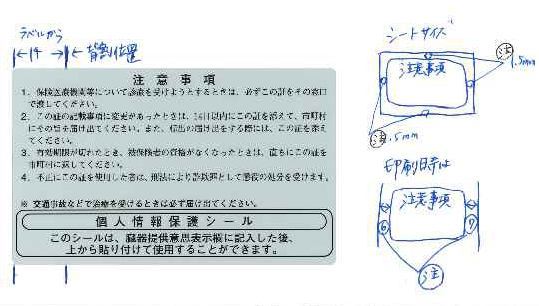 ラベルから
14
背割位置
注意事項
1. 保険医療機関等について診療を受けようとするときは、必ずこの証をその窓口
で渡してください。
2. この証の記載事項に変更があったときは、14日以内にこの証を添えて、市町村
にその旨を届け出てください。また、転出の届け出をする際には、この証を添え
てください。
3. 有効期限が切れたとき、被保険者の資格がなくなったときは、直ちにこの証を
市町村に返してください。
4. 不正にこの証を使用した者は、刑法により詐欺罪として懲役の処分を受けます。
※ 交通事故などで治療を受けるときは必ず届け出てください。
個人情報保護シール
このシールは、臓器提供意思表示欄に記入した後、
上から貼り付けて使用することができます。
シートサイズ
注意事項
注 1.5mm
注 .5mm
印刷時は
注意事項
6 7
注